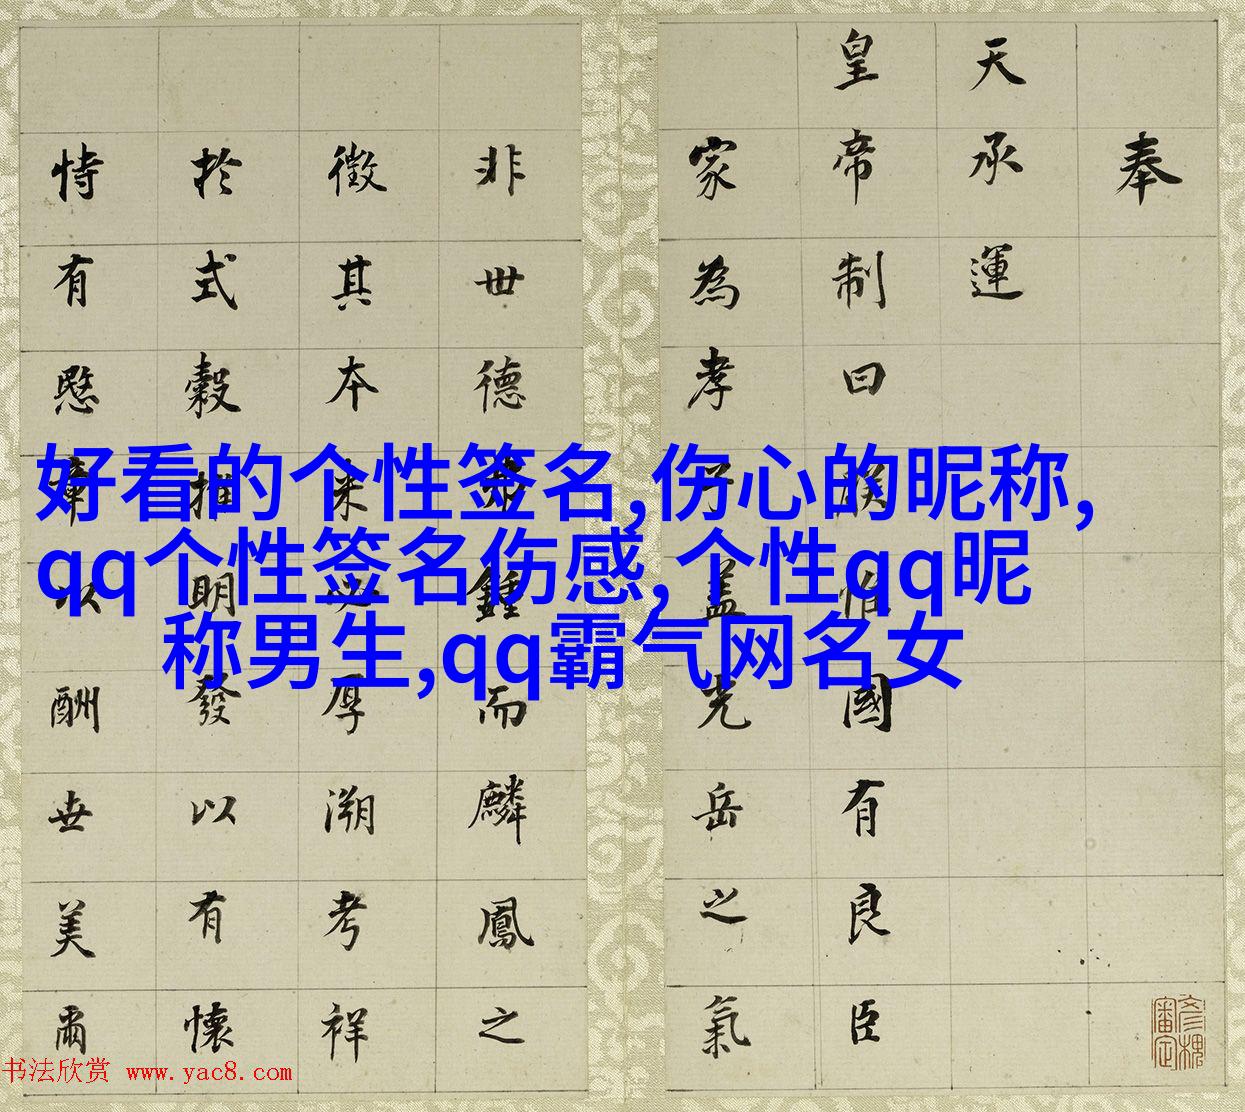 奉
天承運
皇帝制曰朕惟國有良臣
家為孝子蓋光岳之氣
非世德鍾而麟鳳之
徵其本必厚溯考祥
於式穀推明發以有懷
恃有愍章以酬世美爾
好看的个性签名,伤心的昵称,
qq个性签名伤感,个性qq昵
称男生,qq霸气网名女
书法欣赏 www.yac8.com